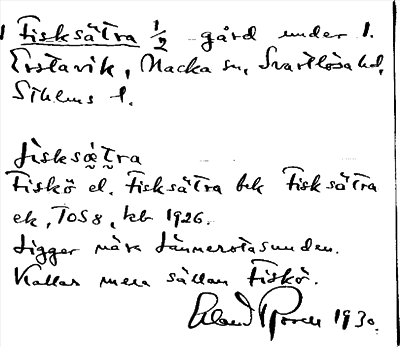 1 Fisksätra 1/2 gård under 1.
Erstavik, Nacka sn, Svartlösa hd,
Sthlms l.
Fisksätra
Fiskö el. Fisksätra bek Fisksätra
ek, TOS 8, kb 1926.
Ligger nära Lännerstasunden.
Kallas mera sällan Fiskö.
1930.